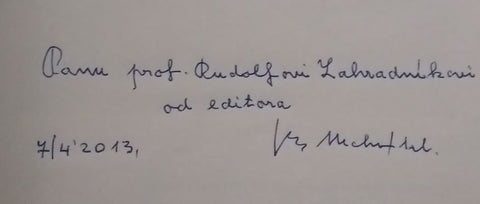 Panu prof. Rudolfovi Zahradníkovi
od editora
7/4 2013,